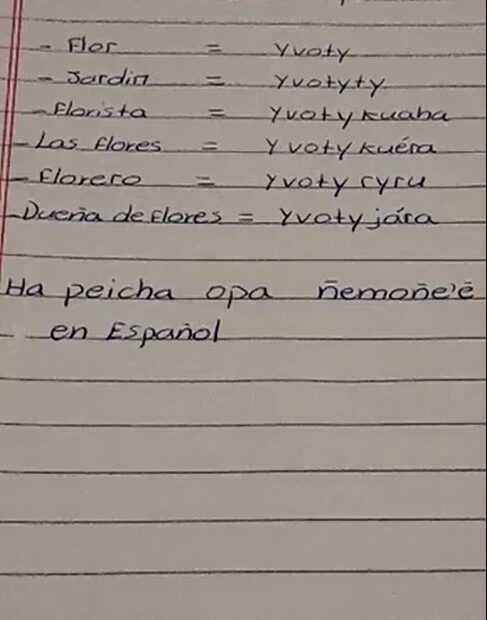 - Flor = Yvoty
- Jardin = Yvotyty
- Florista = Yvoty kuaha
- Las flores = Yvoty kuéra
- Florero = Yvoty ryru
- Dueña de flores = Yvoty jára
Ha peicha opa ñemoñe'ẽ
- en Español